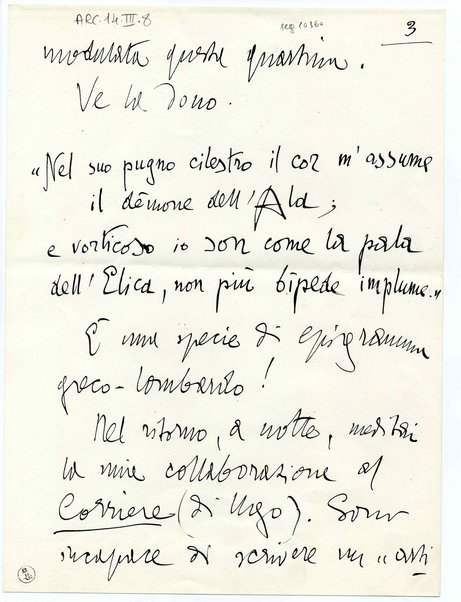 ARC.14.III.8
3
modulata questa quartina.
Ve la dono.
«Nel suo pugno cilestro il cor m'assume
il dèmone dell'Ala;
e vorticoso io son come la pala
dell'Elica, non più bipede implume.»
È una specie di epigramma
greco-lombardo!
Nel ritorno, a notte, meditai
la mia collaborazione al
Corriere (di Ugo). Sono
incapace di scrivere un «arti